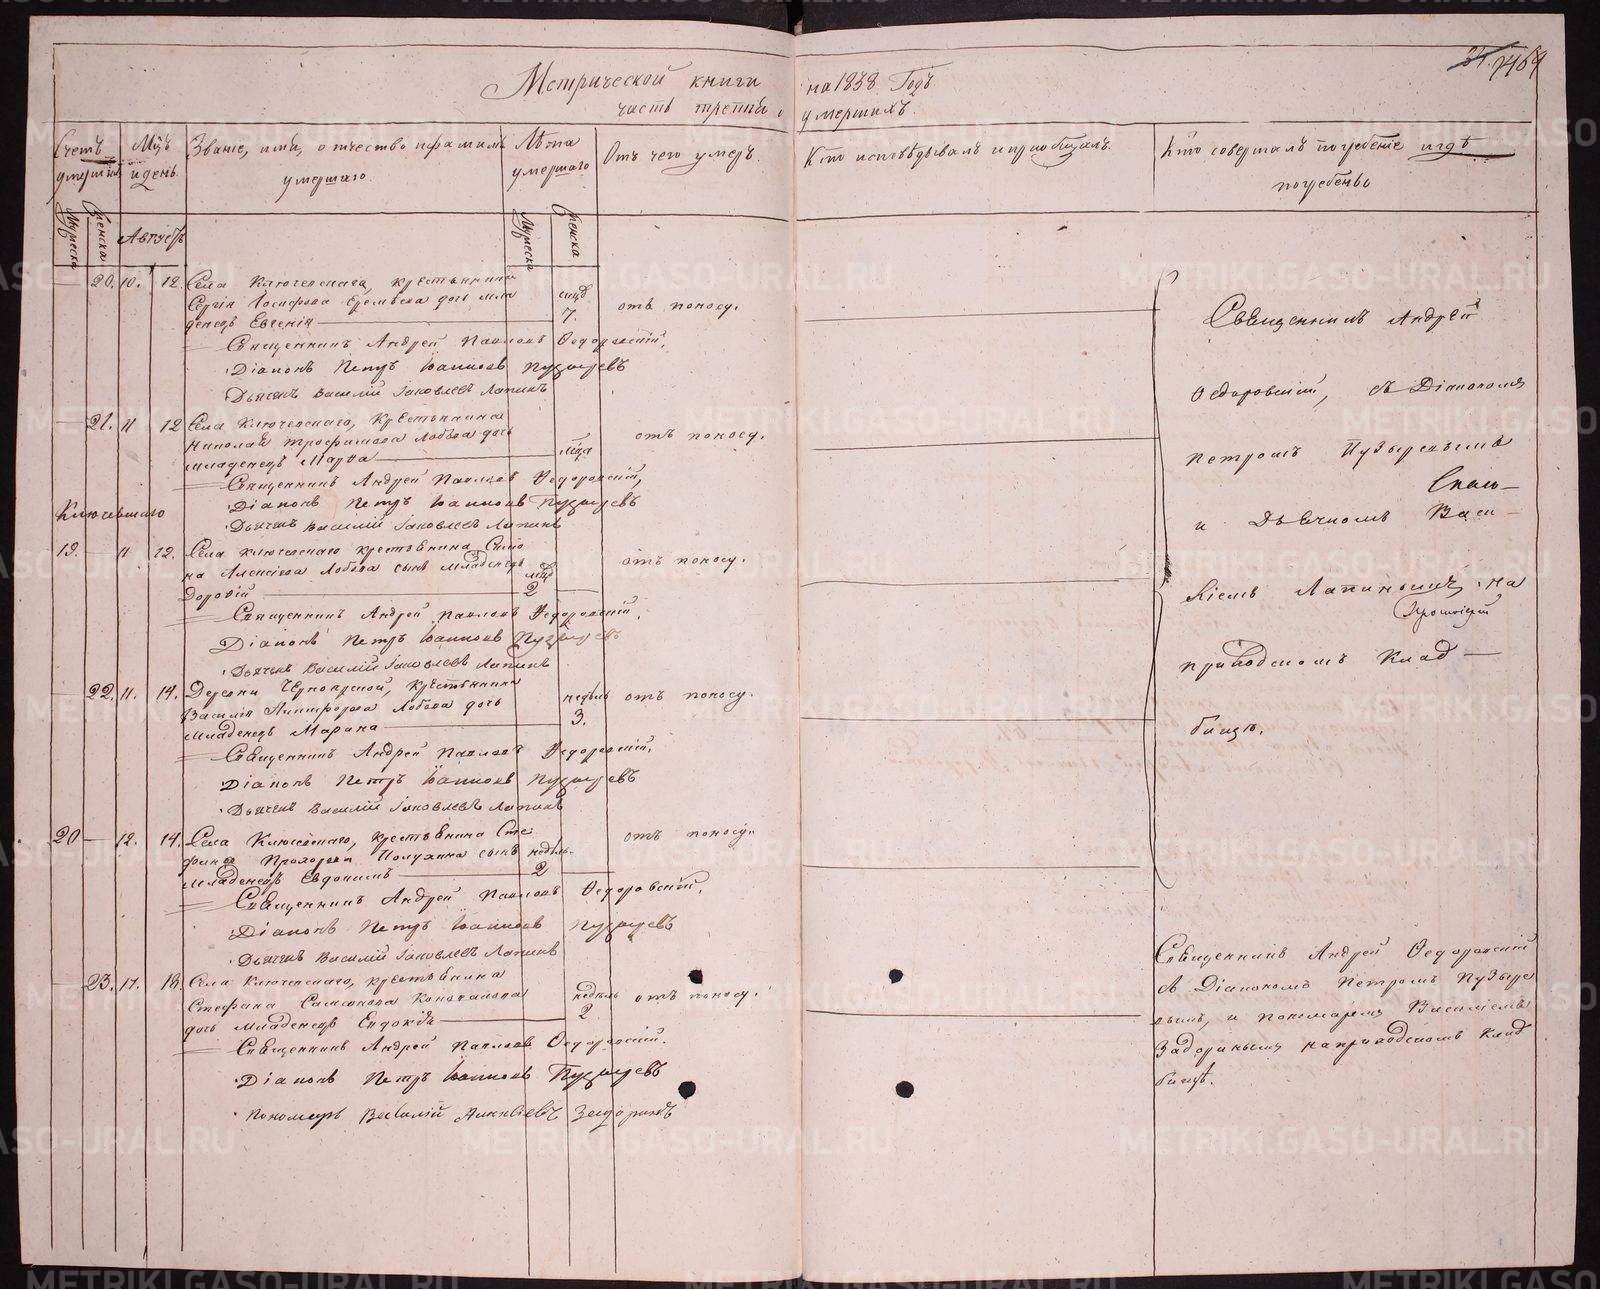 Метрической книги на 1838 Годъ
часть третія о умершихъ.
24. 469
Счетъ умершихъ
Мцъ и день
Званіе, имя, отчество и фамилія умершаго
Лѣта умершаго
Отъ чего умеръ.
Кто исповѣдывалъ и приобщалъ.
Кто совершалъ погребеніе и гдѣ погребены
Мужеска
Женска
Августъ
Мужеска
Женска
20. 10. 12. Села Ключевскаго, крестьянина
Сергія Іосифова дочь мла
денецъ Евгенія 7. отъ поносу.
Священникъ Андрей Павловъ Ѳедоровскій.
Діаконъ Петръ Іоанновъ Пузыревъ
Дьячекъ Василій Іаковлевъ Лапинъ
21. 11 12 Села Ключевскаго, крестьянина
Николая Трофимова Лобова дочь
младенецъ Марѳа отъ поносу.
Священникъ Андрей Павловъ Ѳедоровскій,
Діаконъ Петръ Іоанновъ Пузыревъ
Дьячекъ Василій Іаковлевъ Лапинъ
Ключевскаго
19. 11 12. Села Ключевскаго крестьянина
Алексіева Лобова сынъ младенецъ
Дороѳій 2 отъ поносу.
Священникъ Андрей Павловъ Ѳедоровскій.
Діаконъ Петръ Іоанновъ Пузыревъ
Дьячекъ Василій Іаковлевъ Лапинъ
22. 11. 14. Деревни Черноярской, крестьянина
Василія Никифорова Лобова дочь
младенецъ Марина недѣль 3. отъ поносу.
Священникъ Андрей Павловъ Ѳедоровскій.
Діаконъ Петръ Іоанновъ Пузыревъ
Дьячекъ Василій Іаковлевъ Лапинъ
20 12. 14. Села Ключевскаго, крестьянина Сте
фана Прохорова сынъ
младенецъ Евдокимъ недѣль 2 отъ поносу.
Священникъ Андрей Павловъ Ѳедоровскій.
Діаконъ Петръ Іоанновъ Пузыревъ
Дьячекъ Василій Іаковлевъ Лапинъ
23. 17. 18. Села Ключевскаго, крестьянина
Стефана Самсонова Коновалова
дочь младенецъ Евдокія недѣль 2 отъ поносу.
Священникъ Андрей Павловъ Ѳедоровскій.
Діаконъ Петръ Іоанновъ Пузыревъ
Пономарь Василій Задоринъ
Священникъ Андрей
Ѳедоровскій, съ Діакономъ
Петромъ Пузыревымъ
и Дьячкомъ Васи
ліемъ Лапинымъ на
приходскомъ Клад
бищѣ.
Священникъ Андрей Ѳедоровскій
съ Діакономъ Петромъ Пузыре
вымъ, и пономаремъ Василіемъ
Задоринымъ на приходскомъ клад
бищѣ.
METRIKI.GASO-URAL.RU